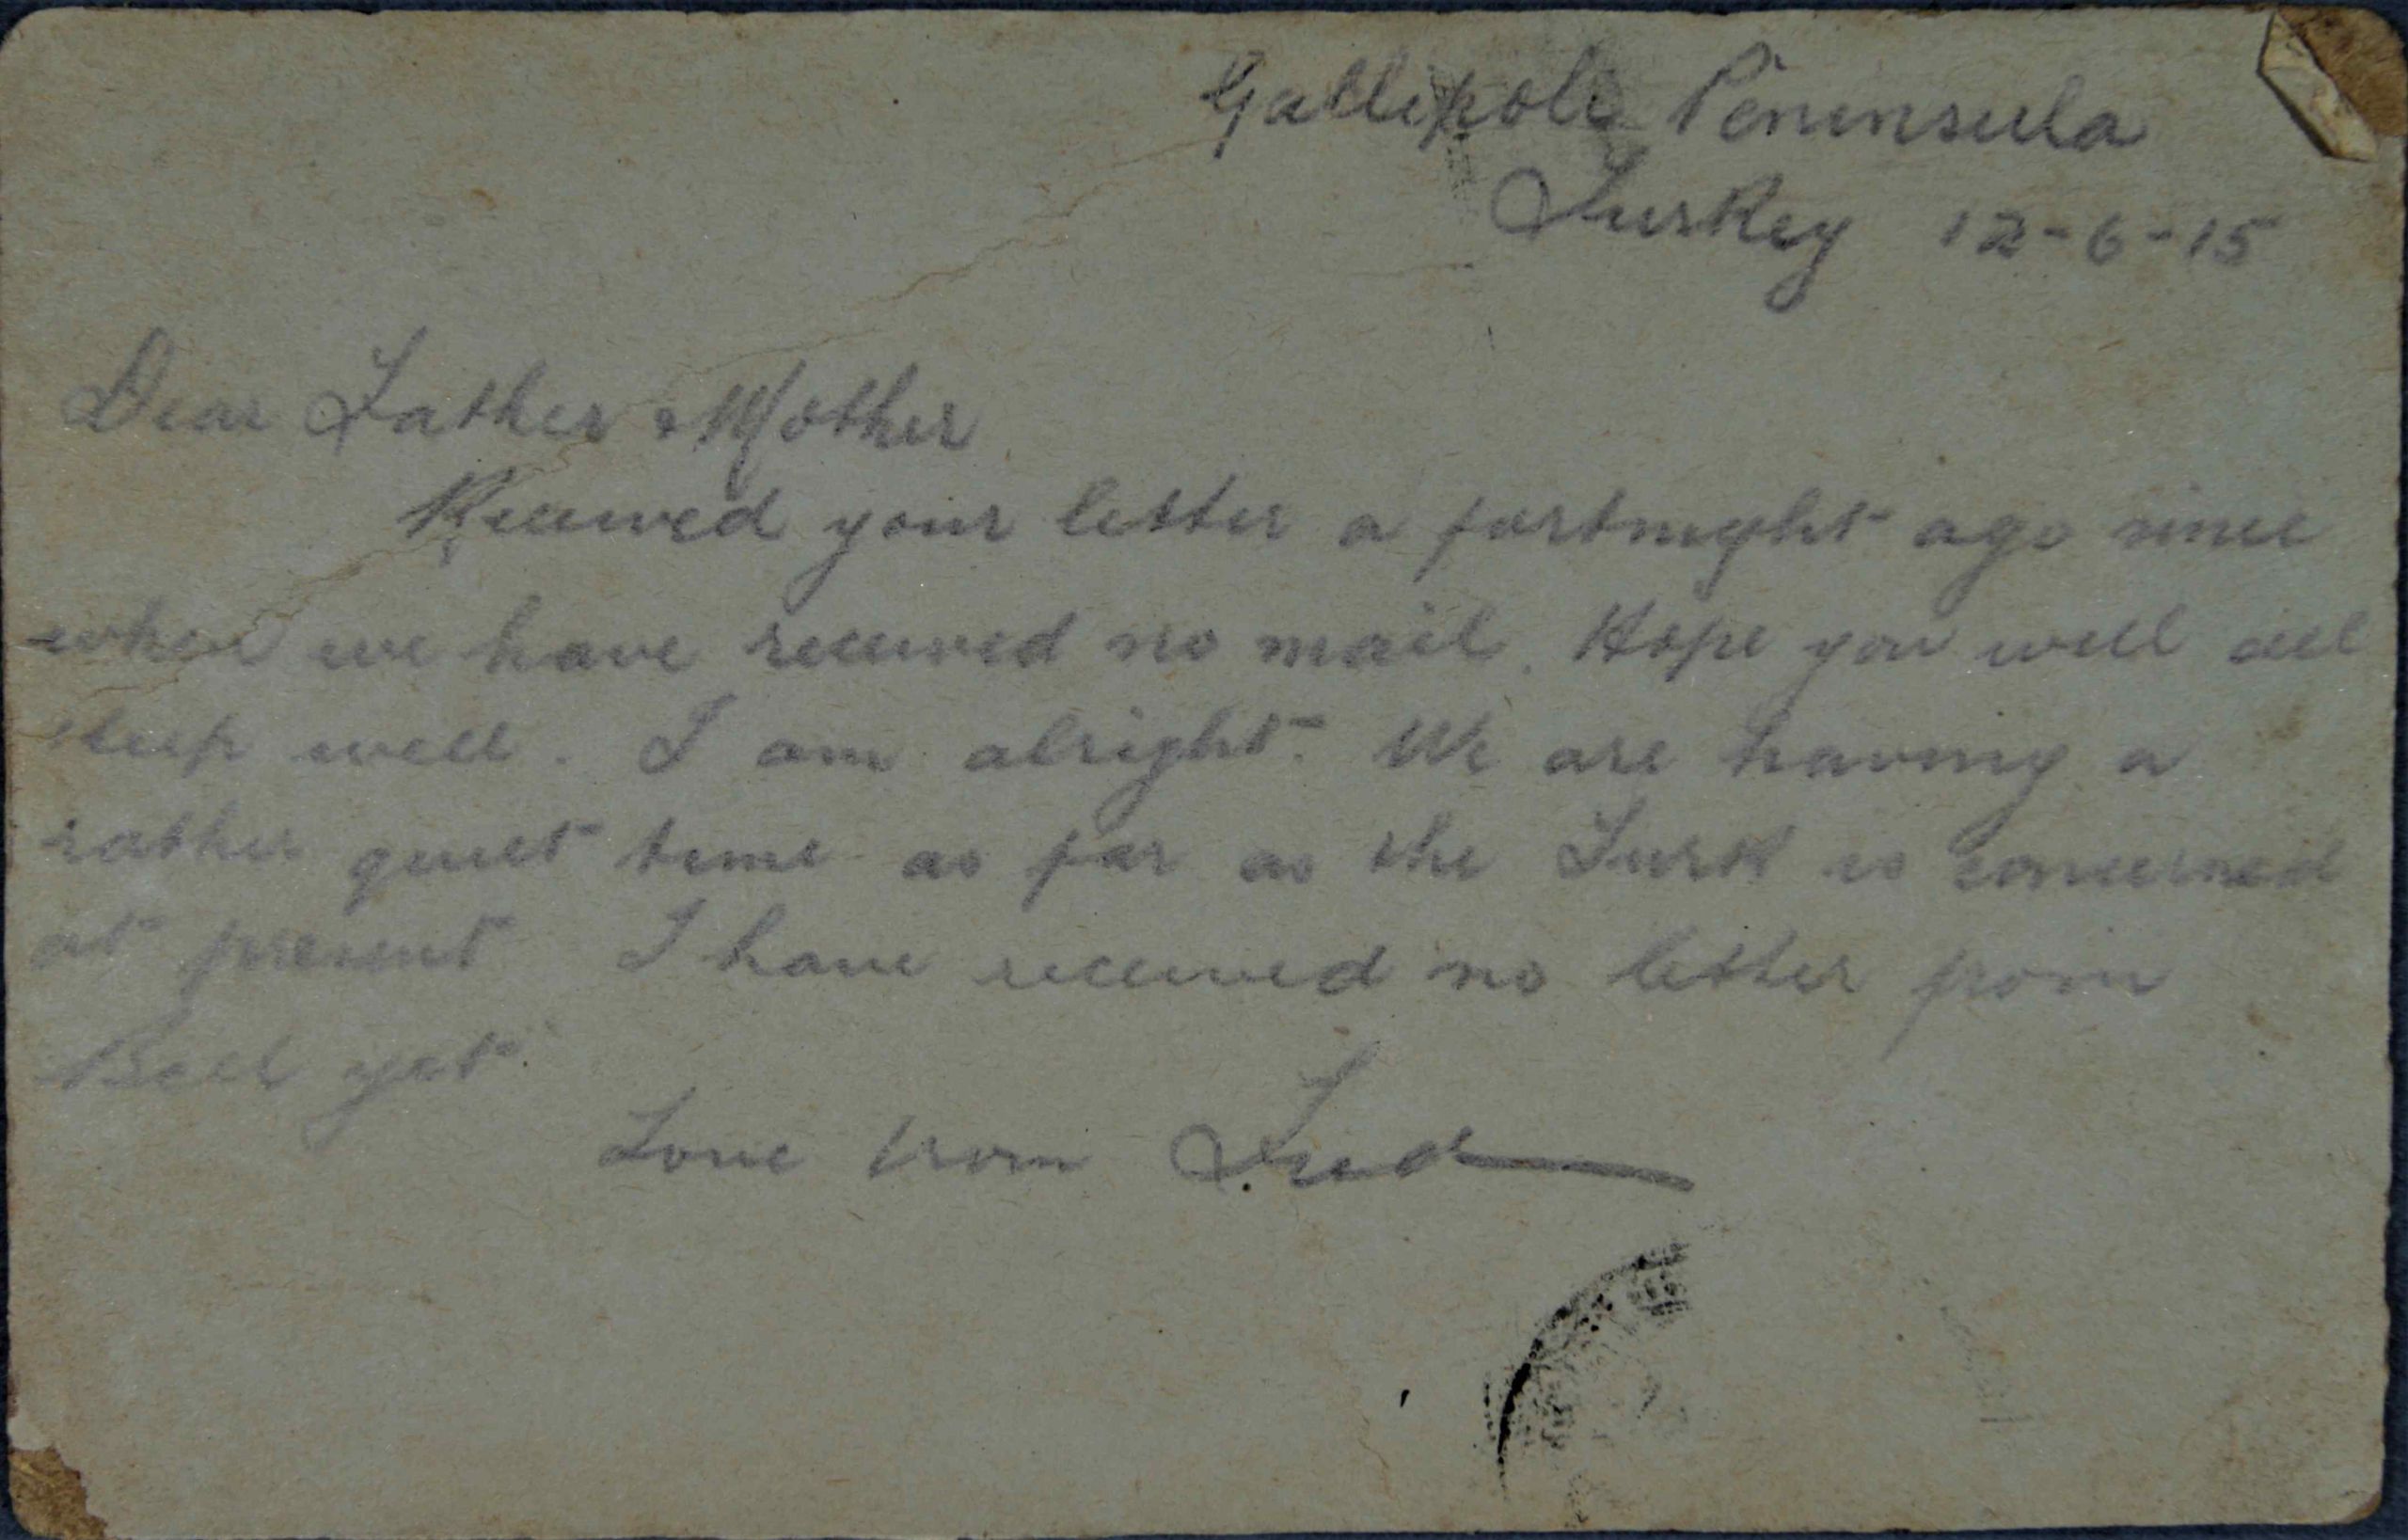 Gallipoli Peninsula
Turkey 12-6-15
Dear Father & Mother
Received your letter a fortnight ago since
when we have received no mail. Hope you will all
keep well. I am alright. We are having a
rather quiet time as far as the Turk is concerned
at present I have received no letter from
Bell yet.
Love from Fred